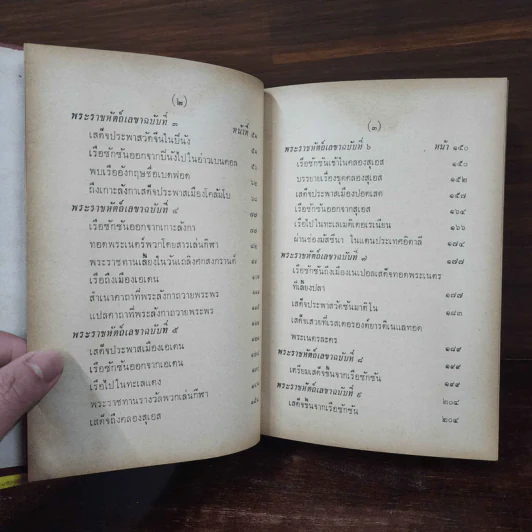 (๒)
พระราชหัตถ์เลขาฉบับที่ ๓ หน้าที่ ๕๑
เสด็จประพาสวัดจีนในปีนัง
เรือซักซันออกจากปีนังไปในอ่าวเบนคอล
พบเรืออังกฤษชื่อเบดฟอด
ถึงเกาะลังกาเสด็จประพาสเมืองโคลัมโบ
พระราชหัตถ์เลขาฉบับที่ ๔
เรือซักซันออกจากเกาะลังกา
ทอดพระเนตร์พวกโดยสารเล่นกีฬา
พระราชทานเลี้ยงในวันเถลิงศกสงกรานต์
เรือถึงเมืองเอเดน
สำเนาคาถาที่พระลังกาถวายพระพร
แปลคาถาที่พระลังกาถวายพระพร
พระราชหัตถ์เลขาฉบับที่ ๕
เสด็จประพาสเมืองเอเดน
เรือซักซันออกจากเอเดน
เรือไปในทะเลแดง
พระราชทานรางวัลพวกเล่นกีฬา
เสด็จถึงคลองสุเอส
(๓)
พระราชหัตถ์เลขาฉบับที่ ๖ หน้า ๑๕๐
เรือซักซันเข้าในคลองสุเอส ๑๕๐
บรรยายเรื่องขุดคลองสุเอส ๑๕๒
เสด็จประพาสเมืองปอตเสด ๑๕๗
เรือซักซันออกจากสุเอส ๑๖๔
เรือไปในทะเลเมดิเตอเรเนียน ๑๖๖
ผ่านช่องมัสซีนา ในแดนประเทศอิตาลี ๑๗๔
พระราชหัตถ์เลขาฉบับที่ ๗ ๑๗๗
เรือซักซันถึงเมืองเนเปอลเสด็จทอดพระเนตร
ที่เลี้ยงปลา ๑๗๗
เสด็จประพาสวัดซันมาติโน ๑๘๓
เสด็จเสวยที่เรสเตอรองต์ยารดิเนแลทอด
พระเนตรละคร ๑๘๙
พระราชหัตถ์เลขาฉบับที่ ๘ ๑๙๙
เตรียมเสด็จขึ้นจากเรือซักซัน ๑๙๙
พระราชหัตถ์เลขาฉบับที่ ๙ ๒๐๔
เสด็จขึ้นจากเรือซักซัน ๒๐๔